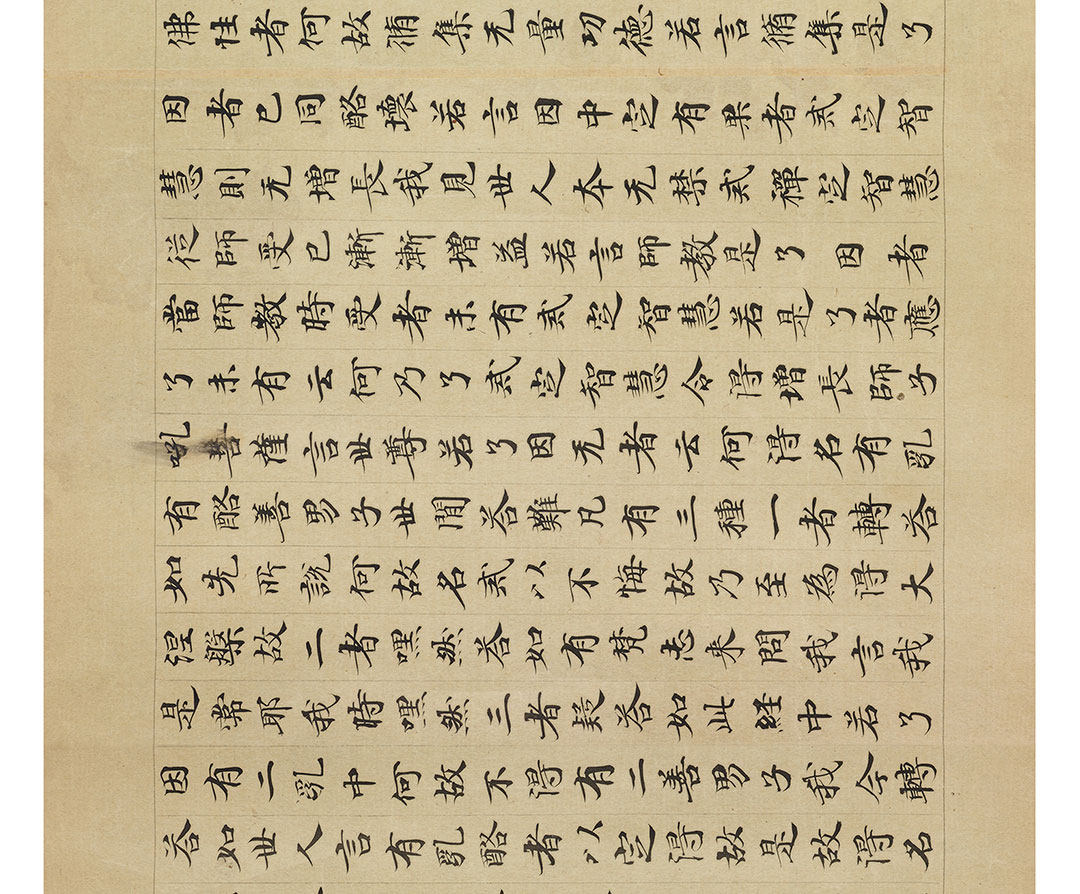 佛性者何故脩集无量功德若言脩集是了
因者已同酪壞若言因中定有果者戒定智
慧則无增長我見世人本无禁戒禪定智慧
從師受已漸漸增益若言師教是了因者
當師教時受者未有戒定智慧若是了者應
了未有云何乃了戒定智慧令得增長師子
吼菩薩言世尊若了因无者云何得名有乳
有酪善男子世間答難凡有三種一者轉答
如先所說何故名戒以不悔故乃至為得大
涅槃故二者嘿然答如有梵志来問我言我
是常耶我時嘿然三者疑答如此經中若了
因有二乳中何故不得有二善男子我今轉
答如世人言有乳酪者以定得故是故得名